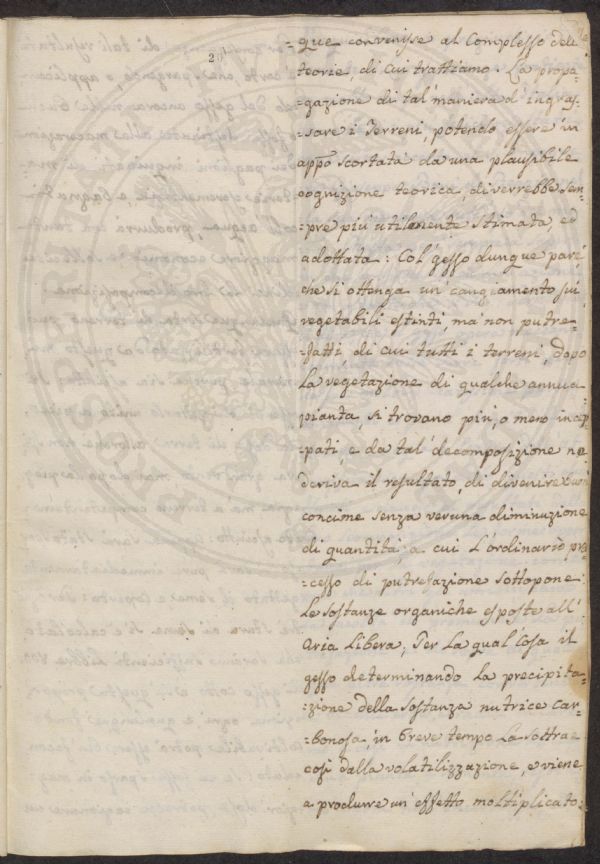 20
=que convenisse al Complesso delle
teorie di cui trattiamo. La propa=
=gazione di tal' maniera d' ingras=
=sare i Terreni, potendo essere in
appo scortata da una plausibile
cognizione teorica, diverrebbe sem
=pre più utilmente stimata, ed
adottata: Col' gesso dunque pare,
che si ottenga un' cangiamento sui
vegetabili estinti, ma non putre=
=fatti, di cui tutti i terreni, dopo
La vegetazione di qualche annua
pianta, si trovano più, o meno incep
=pati, e da tal' decomposizione ne
deriva il resultato, di divenire buon
concime senza veruna diminuzione
di quantità, a cui L'ordinario pro
=cesso di putrefazione sottopone
Le sostanze organiche esposte all'
Aria Libera; Per La qual' Cosa il
gesso determinando La precipita=
=zione della sostanza nutrice Car=
=bonosa, in breve tempo La sottrae
così dalla volatilizzazione, e viene
a produrre un' effetto moltiplicato: